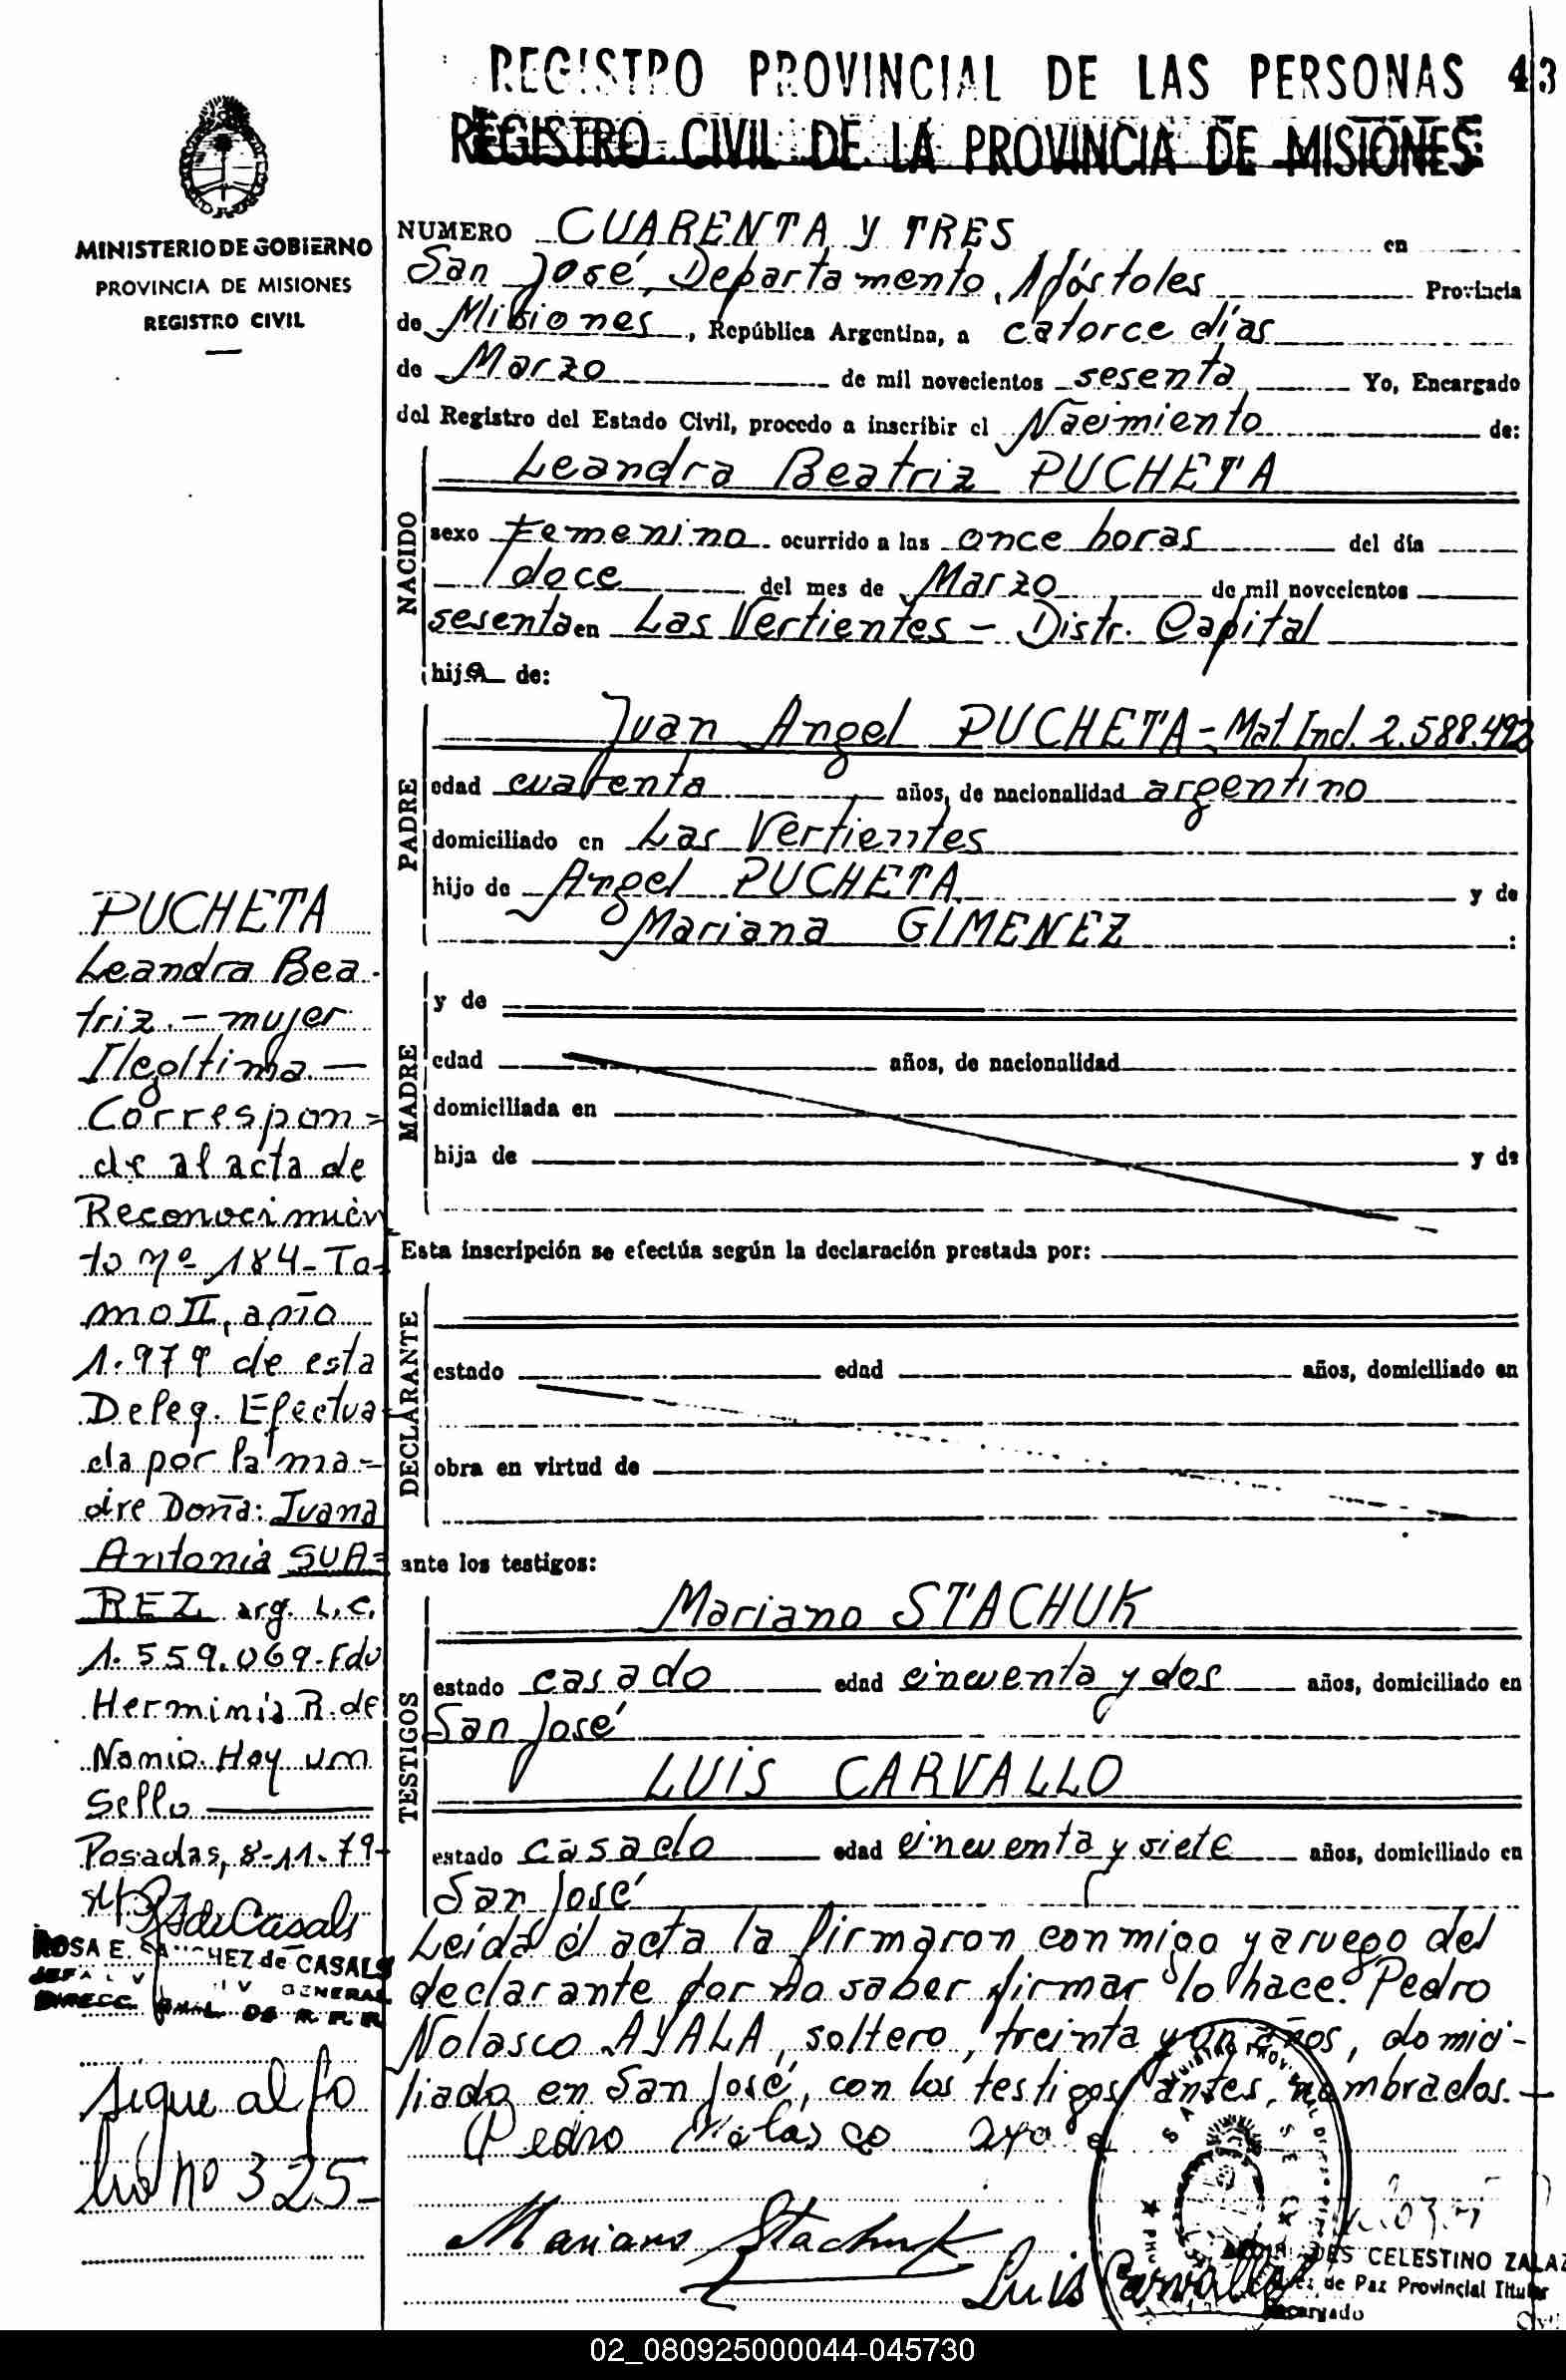 REGISTRO PROVINCIAL DE LAS PERSONAS 43
REGISTRO CIVIL DE LA PROVINCIA DE MISIONES
MINISTERIO DE GOBIERNO
PROVINCIA DE MISIONES
REGISTRO CIVIL
NUMERO CUARENTA Y TRES en
San José, Departamento, Apóstoles Provincia
de Misiones, República Argentina, a catorce días
de Marzo de mil novecientos sesenta Yo, Encargado
del Registro del Estado Civil, procedo a inscribir el Nacimiento de:
NACIDO
Leandra Beatriz PUCHETA
sexo Femenino ocurrido a las once horas del día
doce del mes de Marzo de mil novecientos
sesenta en Las Vertientes - Distr. Capital
hija de:
PADRE
Juan Angel PUCHETA - Mat. Ind. 2.588.492
edad cuarenta años, de nacionalidad argentino
domiciliado en Las Vertientes
hijo de Angel PUCHETA y de
Mariana GIMENEZ :
MADRE
y de
edad años, de nacionalidad
domiciliada en
hija de y de
Esta inscripción se efectúa según la declaración prestada por:
DECLARANTE
estado edad años, domiciliado en
obra en virtud de
ante los testigos:
TESTIGOS
Mariano STACHUK
estado casado edad cincuenta y dos años, domiciliado en
San José
LUIS CARVALLO
estado casado edad cincuenta y siete años, domiciliado en
San José
Leída el acta la firmaron conmigo y a ruego del
declarante por no saber firmar lo hace Pedro
Nolasco AYALA, soltero, treinta y un años, domici-
liado en San José, con los testigos antes nombrados.-
Pedro Nolasco
Mariano Stachuk
Luis Carvallo
CELESTINO
de Paz Provincial Titular
Encargado
PUCHETA
Leandra Bea-
triz.- mujer
Ilegítima.-
Correspon=
de al acta de
Reconocimien
to nº 184- To-
mo II, año
1.979 de esta
Deleg. Efectua
da por la ma=
dre Doña: Juana
Antonia SUA=
REZ arg. L.C.
1.559.069-Fdo
Herminia R. de
Namio. Hay um
Sello
Posadas, 8-11-79-
de Casals
ROSA E. SANCHEZ de CASALS
GENERAL
sigue al fo
lio nº 325-
02_080925000044-045730